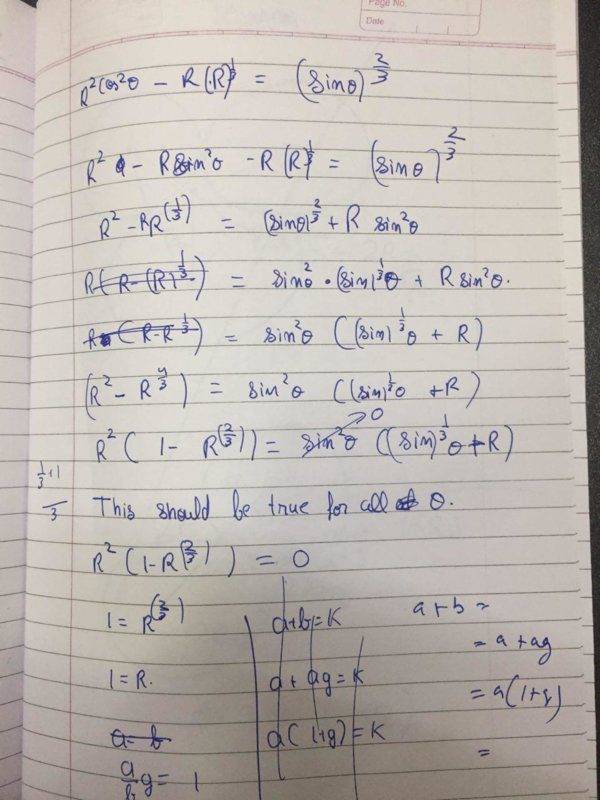 Page No.
Date
R²cos²θ - R(R)^(1/3) = (sinθ)^(2/3)
R² - R sin²θ - R(R)^(1/3) = (sinθ)^(2/3)
R² - RR^(1/3) = (sinθ)^(2/3) + R sin²θ
R(R-(R)^(1/3)) = sinθ² · (sin)^(1/3)θ + R sin²θ.
R(R-R^(1/3)) = sin²θ ((sin)^(1/3)θ + R)
(R² - R^(4/3)) = sin²θ ((sin)^(1/3)θ + R)
0
R²(1 - R^(2/3)) = sin²θ ((sin)^(1/3)θ + R)
1/3 + 1
3
This should be true for all θ.
R²(1-R^(2/3)) = 0
1 = R^(2/3)
a+b=K
a+b =
= a+ag
1=R.
a+ag=K
= a(1+g)
a=b
a(1+g)=K
=
a/b g = 1